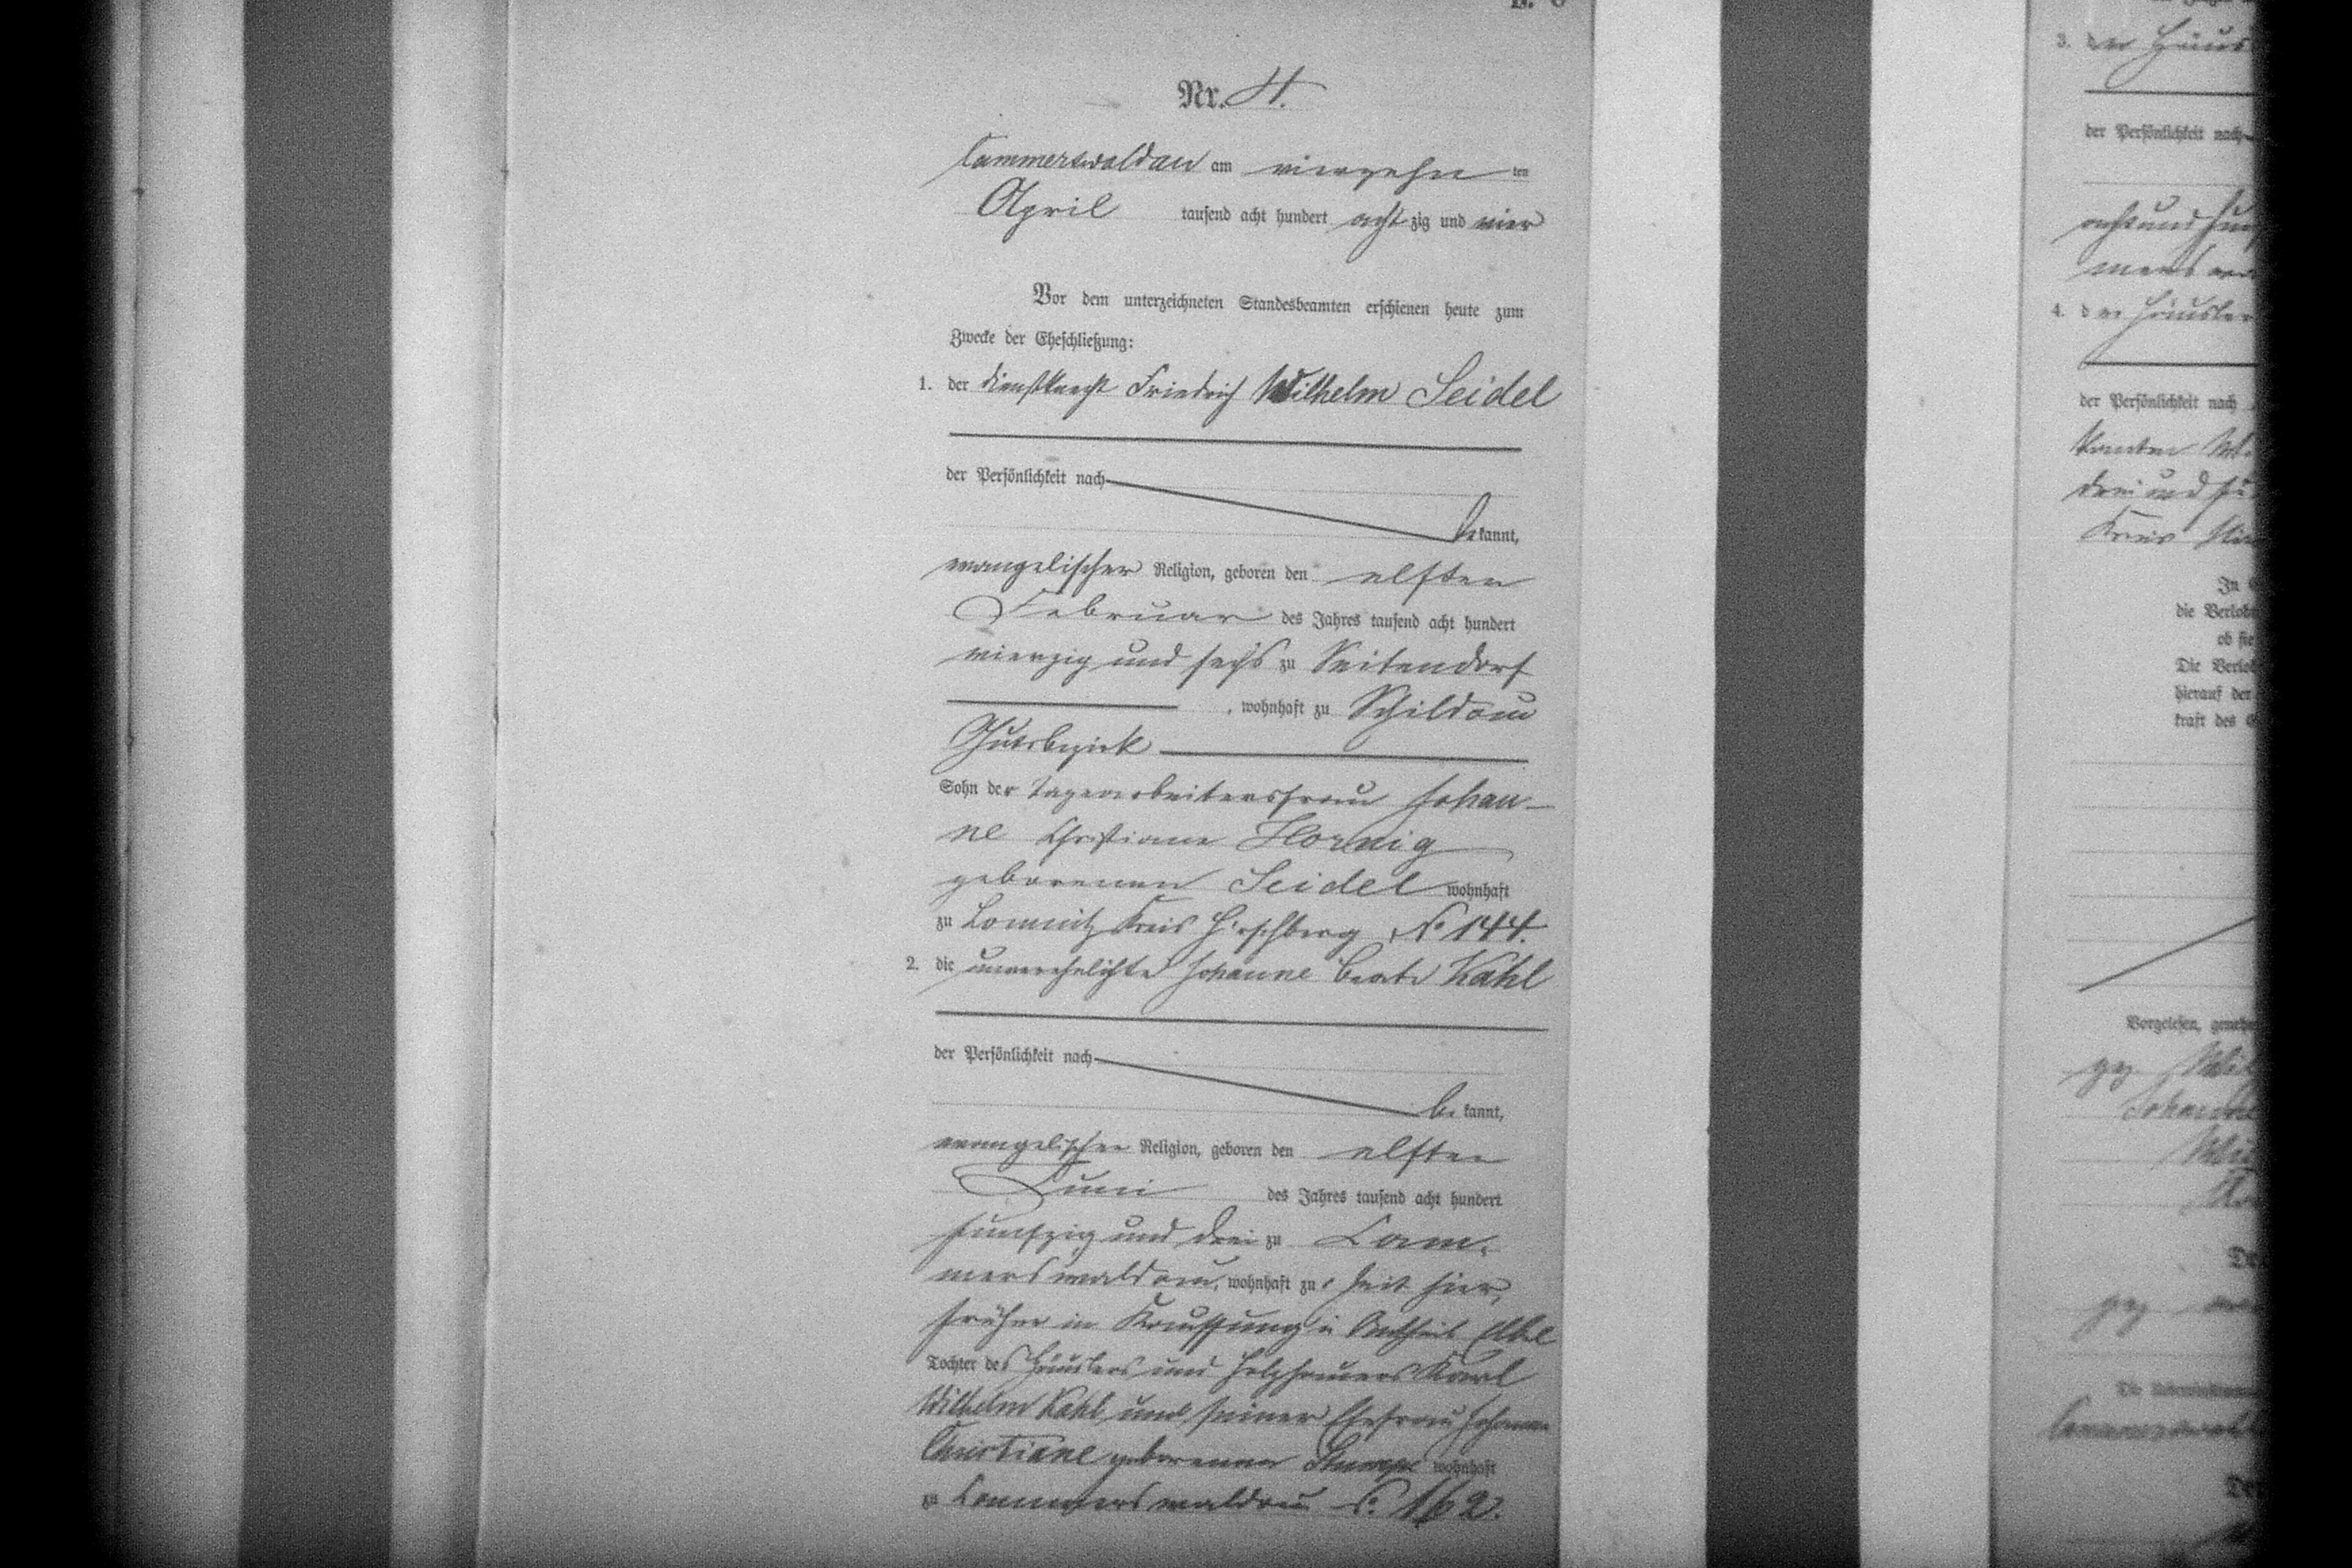 B. 6
Nr. 4.
Cammerswaldau am vierzehn ten
April tausend acht hundert acht zig und vier
Vor dem unterzeichneten Standesbeamten erschienen heute zum
Zwecke der Eheschließung:
1. der Dienstknecht Friedrich Wilhelm Seidel
der Persönlichkeit nach
be kannt,
evangelischer Religion, geboren den elften
Februar des Jahres tausend acht hundert
vierzig und sechs zu Seitendorf
, wohnhaft zu Schildau
Gutsbezirk
Sohn der Tagearbeitersfrau Johan-
ne Christiane Hornig
geborenen Seidel wohnhaft
zu Lomnitz Kreis Hirschberg No 144.
2. die unverehelichte Johanne Beate Kahl
der Persönlichkeit nach
be kannt,
evangelischer Religion, geboren den elften
Juni des Jahres tausend acht hundert
fünfzig und drei zu Cam-
merswaldau, wohnhaft zu Zeit hier,
früher in Kauffung Antheil
Tochter des Häuslers und Holzhauers Karl
Wilhelm Kahl und seiner Ehefrau Johanne
Christiane geborenen Stumpe wohnhaft
zu Cammerswaldau No 162.
3. der Häus
der Persönlichkeit nach
acht und
4. der Häusler
der Persönlichkeit nach
kannten
drei und
Kreis
In
die Verlob
ob sie
Die Verlob
hierauf der
kraft des
Vorgelesen, geneh
gez. Wil
Johanne
De
gez.
Cammerswald
De